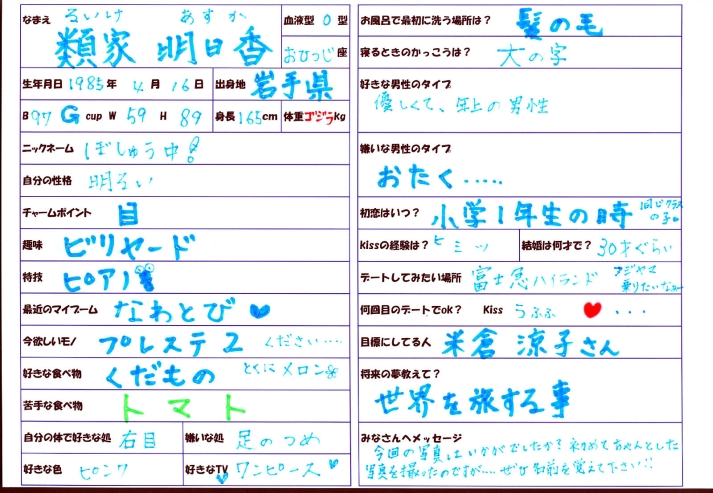 なまえ るいけ あすか 類家 明日香 血液型 O 型
おひつじ 座
生年月日 1985 年 4 月 16 日 出身地 岩手県
B 97 G cup W 59 H 89 身長 165 cm 体重 ゴジラ kg
ニックネーム ぼしゅう中!
自分の性格 明るい
チャームポイント 目
趣味 ビリヤード
特技 ピアノ
最近のマイブーム なわとび
今欲しいモノ プレステ2 ください・・・・
好きな食べ物 くだもの とくにメロン
苦手な食べ物 トマト
自分の体で好きな処 右目 嫌いな処 足のつめ
好きな色 ピンク 好きなTV ワンピース
お風呂で最初に洗う場所は? 髪の毛
寝るときのかっこうは? 大の字
好きな男性のタイプ
優しくて、年上の男性
嫌いな男性のタイプ
おたく・・・・・
初恋はいつ? 小学1年生の時 同じクラスの子。
Kissの経験は? ヒミツ 結婚は何才で? 30才ぐらい
デートしてみたい場所 富士急ハイランド フジヤマ乗りたいなぁー
何回目のデートでok? Kiss うふふ ・・・
目標にしてる人 米倉 涼子さん
将来の夢教えて?
世界を旅する事
みなさんへメッセージ
今回の写真はいかがでしたか?初めてちゃんとした
写真を撮ったのですが・・・・ぜひ名前を覚えて下さい!!